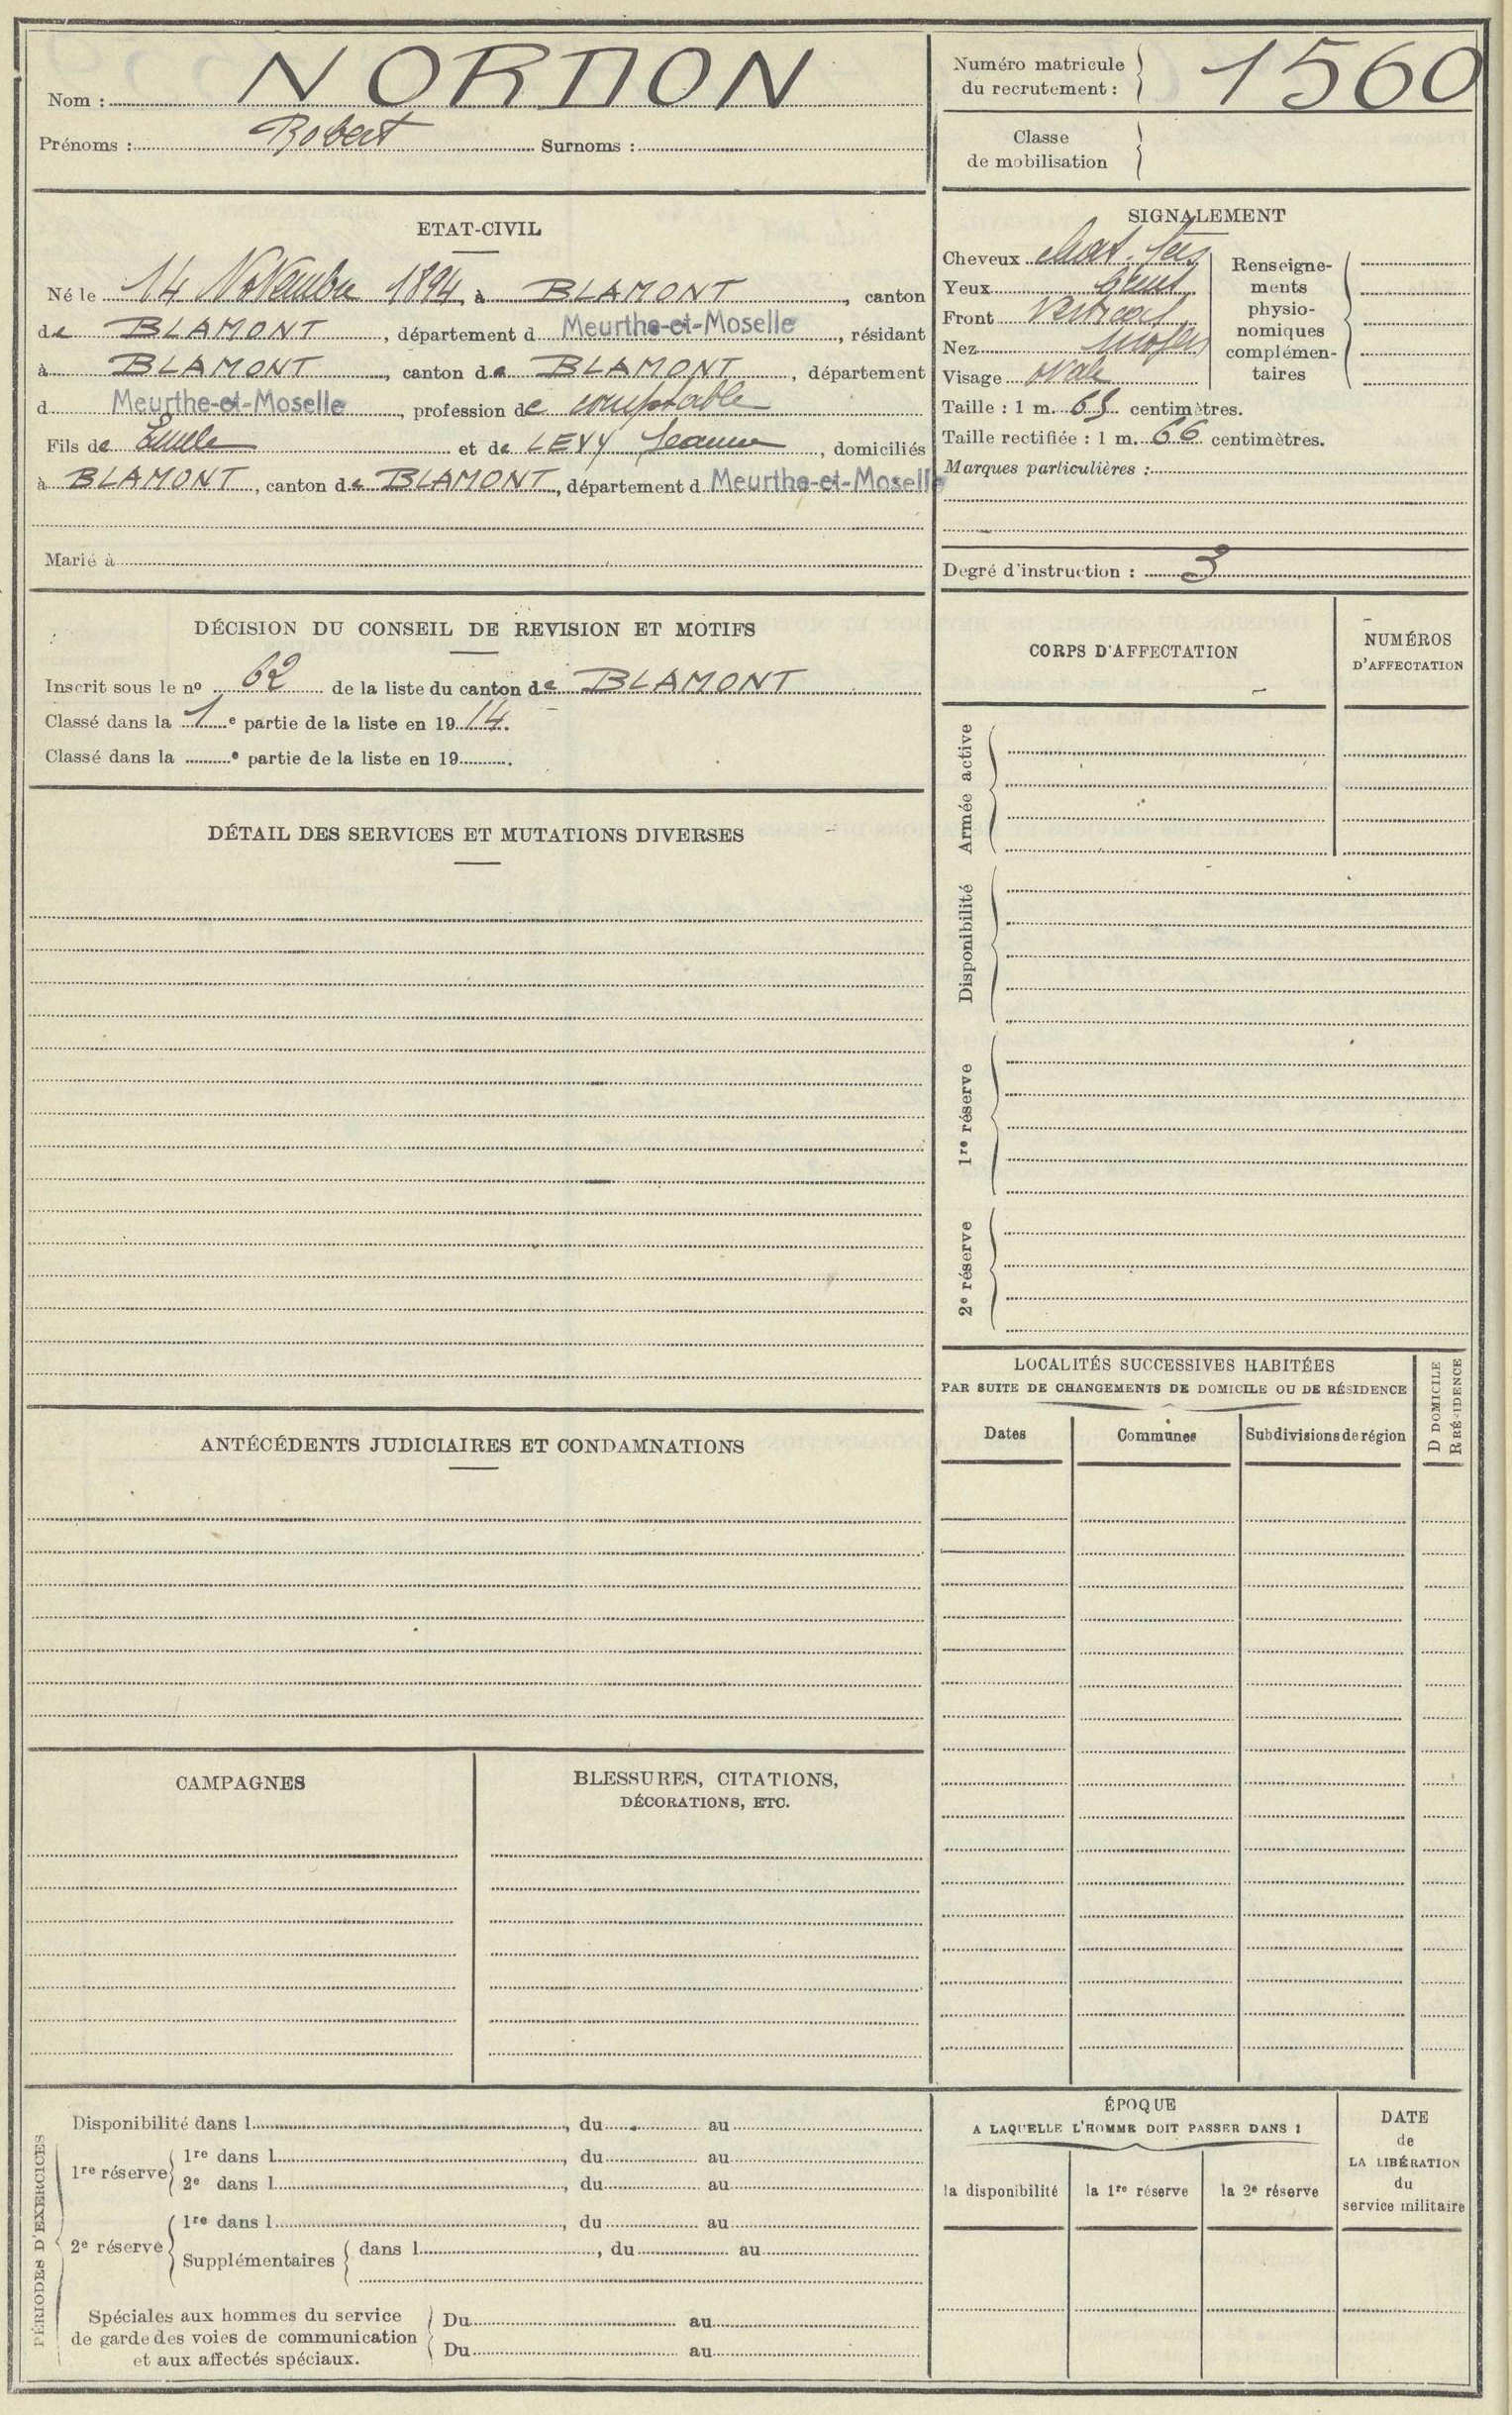 Nom : NORDON
Prénoms : Robert Surnoms :
Numéro matricule
du recrutement : 1560
Classe
de mobilisation
ETAT-CIVIL
Né le 14 Novembre 1894, à BLAMONT, canton
de BLAMONT, département d Meurthe-et-Moselle, résidant
à BLAMONT, canton de BLAMONT, département
d Meurthe-et-Moselle, profession de comptable
Fils de Emile et de LEVY Jeanne, domiciliés
à BLAMONT, canton de BLAMONT, département d Meurthe-et-Moselle
Marié à
SIGNALEMENT
Cheveux chat.
Yeux
Front Vertical
Nez moyen
Visage ovale
Renseigne-
ments
physio-
nomiques
complémen-
taires
Taille : 1 m. 65 centimètres.
Taille rectifiée : 1 m. 66 centimètres.
Marques particulières :
Degré d'instruction : 3
DÉCISION DU CONSEIL DE REVISION ET MOTIFS
Inscrit sous le nº 62 de la liste du canton de BLAMONT
Classé dans la 1e partie de la liste en 1914.
Classé dans la e partie de la liste en 19 .
CORPS D'AFFECTATION
NUMÉROS
D'AFFECTATION
Armée active
Disponibilité
1re réserve
2e réserve
DÉTAIL DES SERVICES ET MUTATIONS DIVERSES
ANTÉCÉDENTS JUDICIAIRES ET CONDAMNATIONS
LOCALITÉS SUCCESSIVES HABITÉES
PAR SUITE DE CHANGEMENTS DE DOMICILE OU DE RÉSIDENCE
D DOMICILE
R RÉSIDENCE
Dates Communes Subdivisions de région
CAMPAGNES
BLESSURES, CITATIONS,
DÉCORATIONS, ETC.
PÉRIODES D'EXERCICES
Disponibilité dans l , du au
1re réserve
1re dans l , du au
2e dans l , du au
2e réserve
1re dans l , du au
Supplémentaires dans l , du au
Spéciales aux hommes du service
de garde des voies de communication
et aux affectés spéciaux.
Du au
Du au
ÉPOQUE
A LAQUELLE L'HOMME DOIT PASSER DANS :
la disponibilité la 1re réserve la 2e réserve
DATE
de
LA LIBÉRATION
du
service militaire